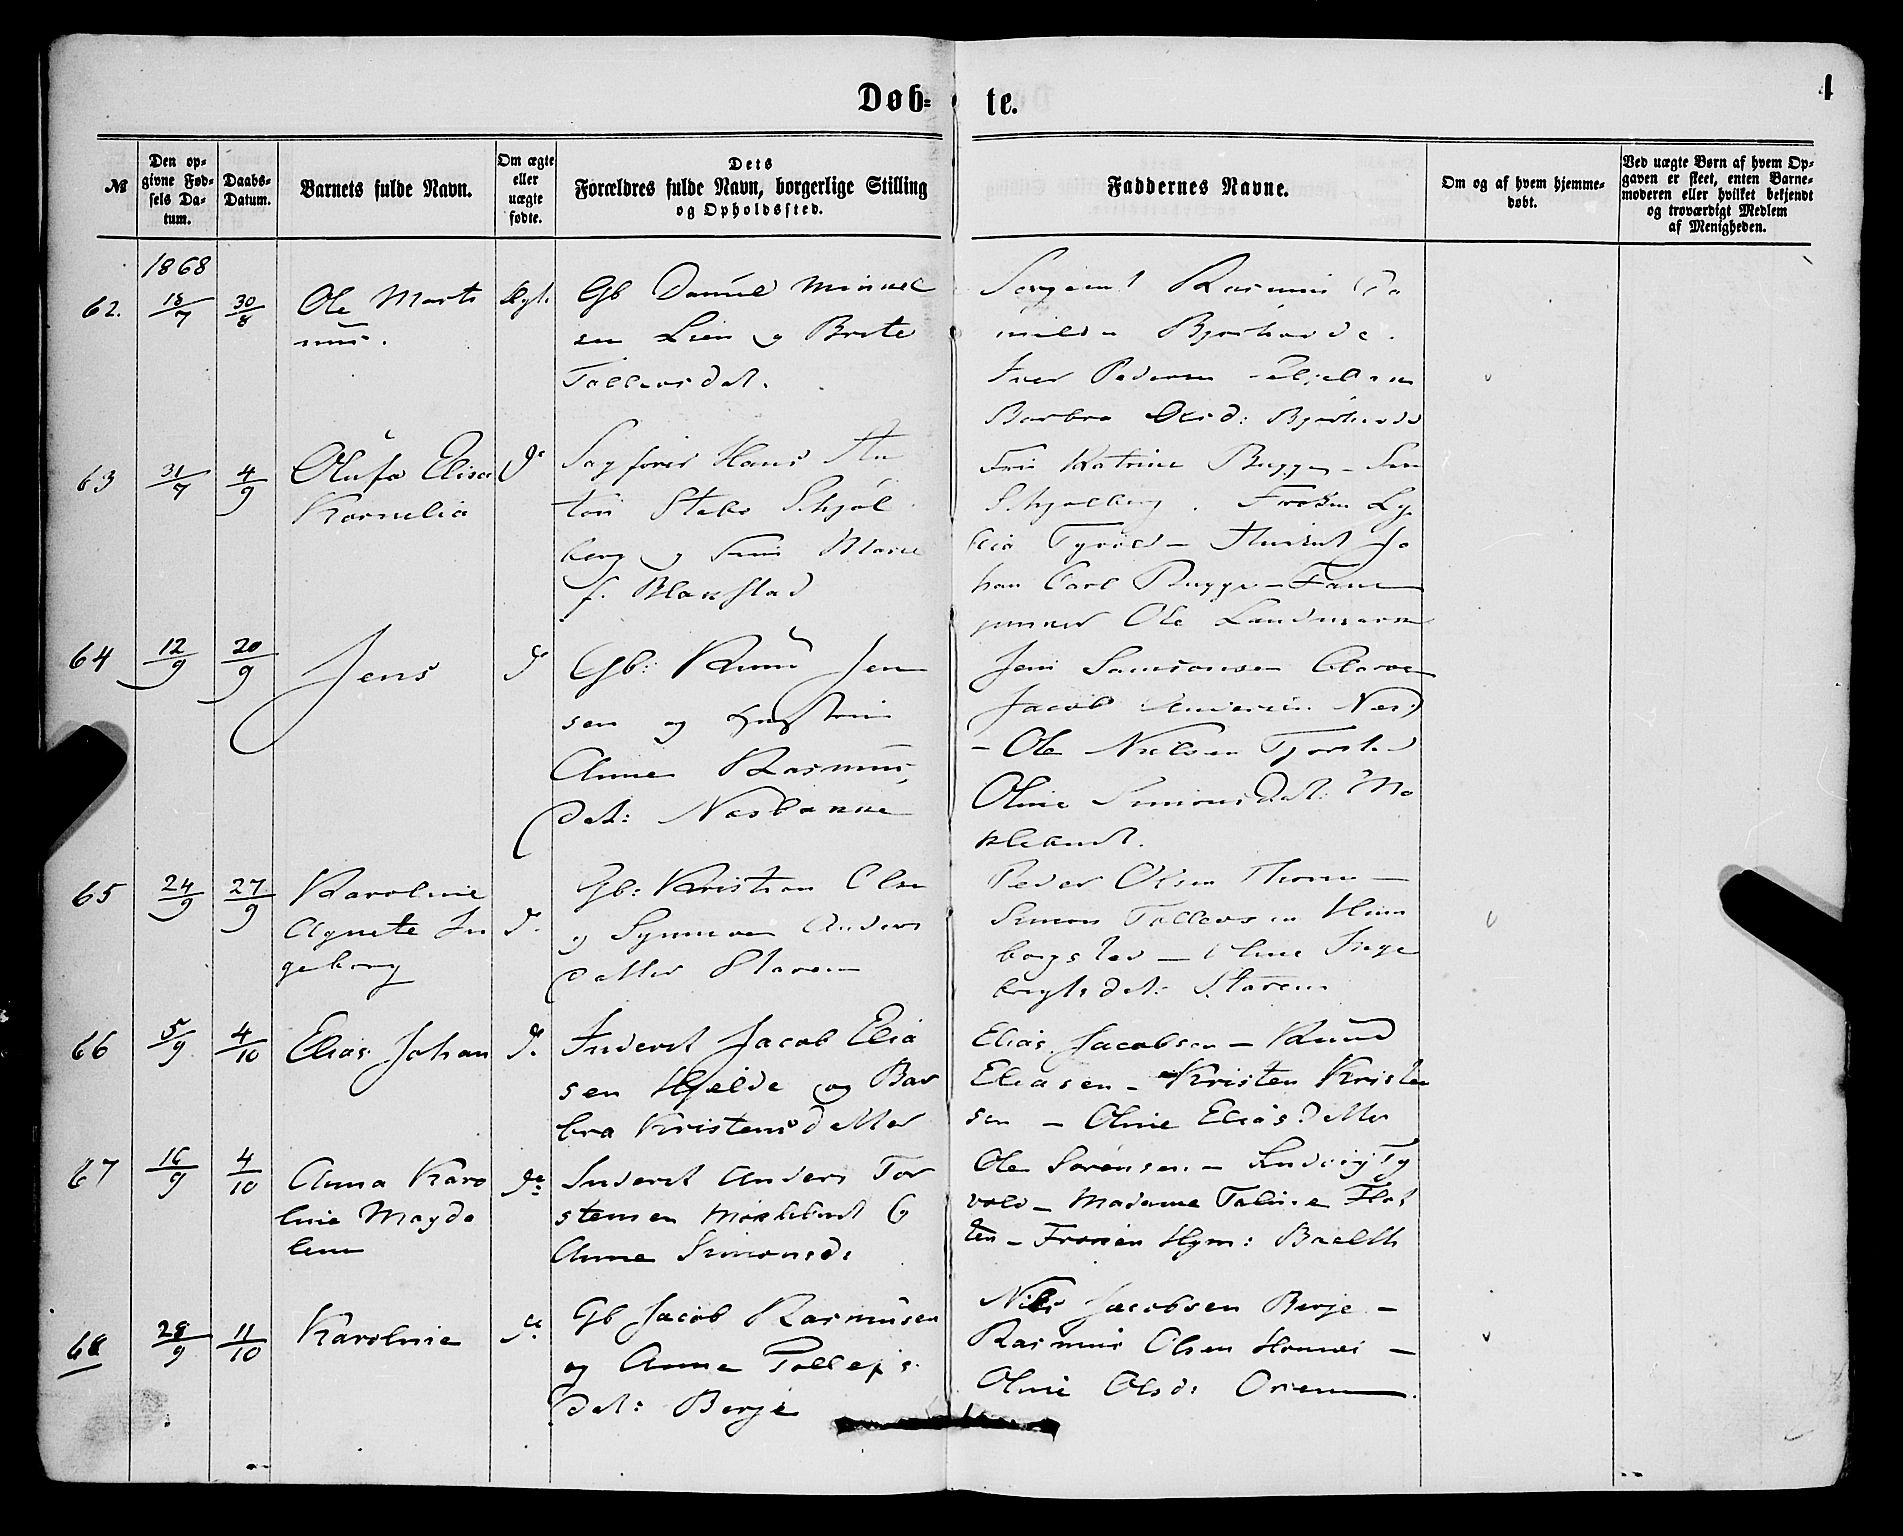 Døb-
te.
4
№
Den op-
givne Fød-
sels Da-
tum.
Daabs-
Datum.
Barnets fulde Navn.
Om ægte
eller
uægte
fødte.
Dets
Forældres fulde Navn, borgerlige Stilling
og Opholdssted.
Faddernes Navne.
Om og af hvem hjemme-
døbt.
Ved uægte Børn af hvem Op-
gaven er skeet, enten Barne-
moderen eller hvilket bekjendt
og troværdigt Medlem
af Menigheden.
1868
62.
18/7
30/8
Ole Marti
nus.
Ægt.
Gb Daniel
sen Lien og Brite
Tollevsdat.
Sergeant Rasmus
Bjørhovde.
Iver Pedersen
Barbra
63
31/7
4/9
Olufa Elisa
Kornelia
do
Sagfører Hans An
ton Stabo Skjøl
berg og Frue Marie
f. Blakstad
Fru Katrine Bugge - Fru
Skjølberg. Frøken Ly
dia Tyvold - Student Jo
han Carl Bugge -
Ole Landmark
64
12/9
20/9
Jens
do
Gb: Knud Jen
sen og Hustru
Anne Rasmus
dat: Nasbakke
Jens Samsonsen
Jacob Andersen
- Ole Nielsen
Oline Simonsdat: Mo
klebust.
65
24/9
27/9
Karoline
Agnete In
geborg
d.
Gb: Kristian Olsen
og Synneve Anders
datter Staren
Peder Olsen
Simon Tollevsen
Inge
brigtsdat: Staren
66
5/9
4/10
Elias Johan
d.
Inderst Jacob Elia
sen Hjelde og Bar
bra Kristensdatter
Elias Jacobsen - Knud
Eliasen - Kristen Kristen
sen - Oline Eliasdatter
67
16/9
4/10
Anna Karo
line Magda
lena
do:
Inderst Anders Tor
stensen Moklebust og
Anne Simonsd:
Ole Sørensen - Ludvig Ty
vold - Madame Taline Flot
ten - Frøken Hgm: Baelth
68
28/9
11/10
Karoline
do.
Gb Jacob Rasmusen
og Anne Tollejs
dat: Berje
Nils Jacobsen Berje -
Rasmus Olsen -
Oline Olsd: